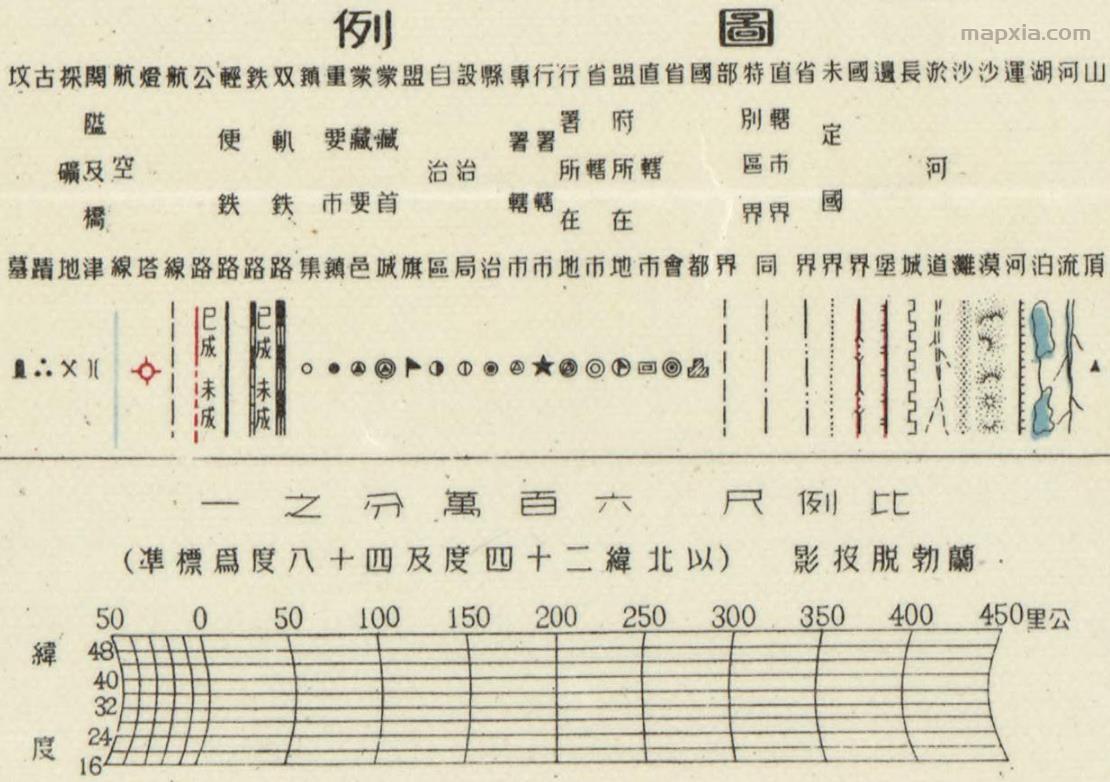 圖例
山頂
河流
湖泊
運河
沙漠
沙灘
淤河道
長城
邊堡
國界
未定國界
省界
直轄市界
特別區界
同
部界
國都
省會
直轄市
盟府所在地
省轄市
行署所在地
行署轄市
專署轄市
縣治
設治局
自治區
盟旗
蒙藏首城
蒙藏要邑
重要市鎮
鎮集
双軌鉄路
鉄路
輕便鉄路
公路
航線
燈塔
航空線
關隘及橋津
採礦地
古蹟
坟墓
已成 未成
已成 未成
比例尺 六百萬分之一
蘭勃脫投影 (以北緯二十四度及四十八度爲標準)
50 0 50 100 150 200 250 300 350 400 450公里
緯度
48
40
32
24
16
mapxia.com